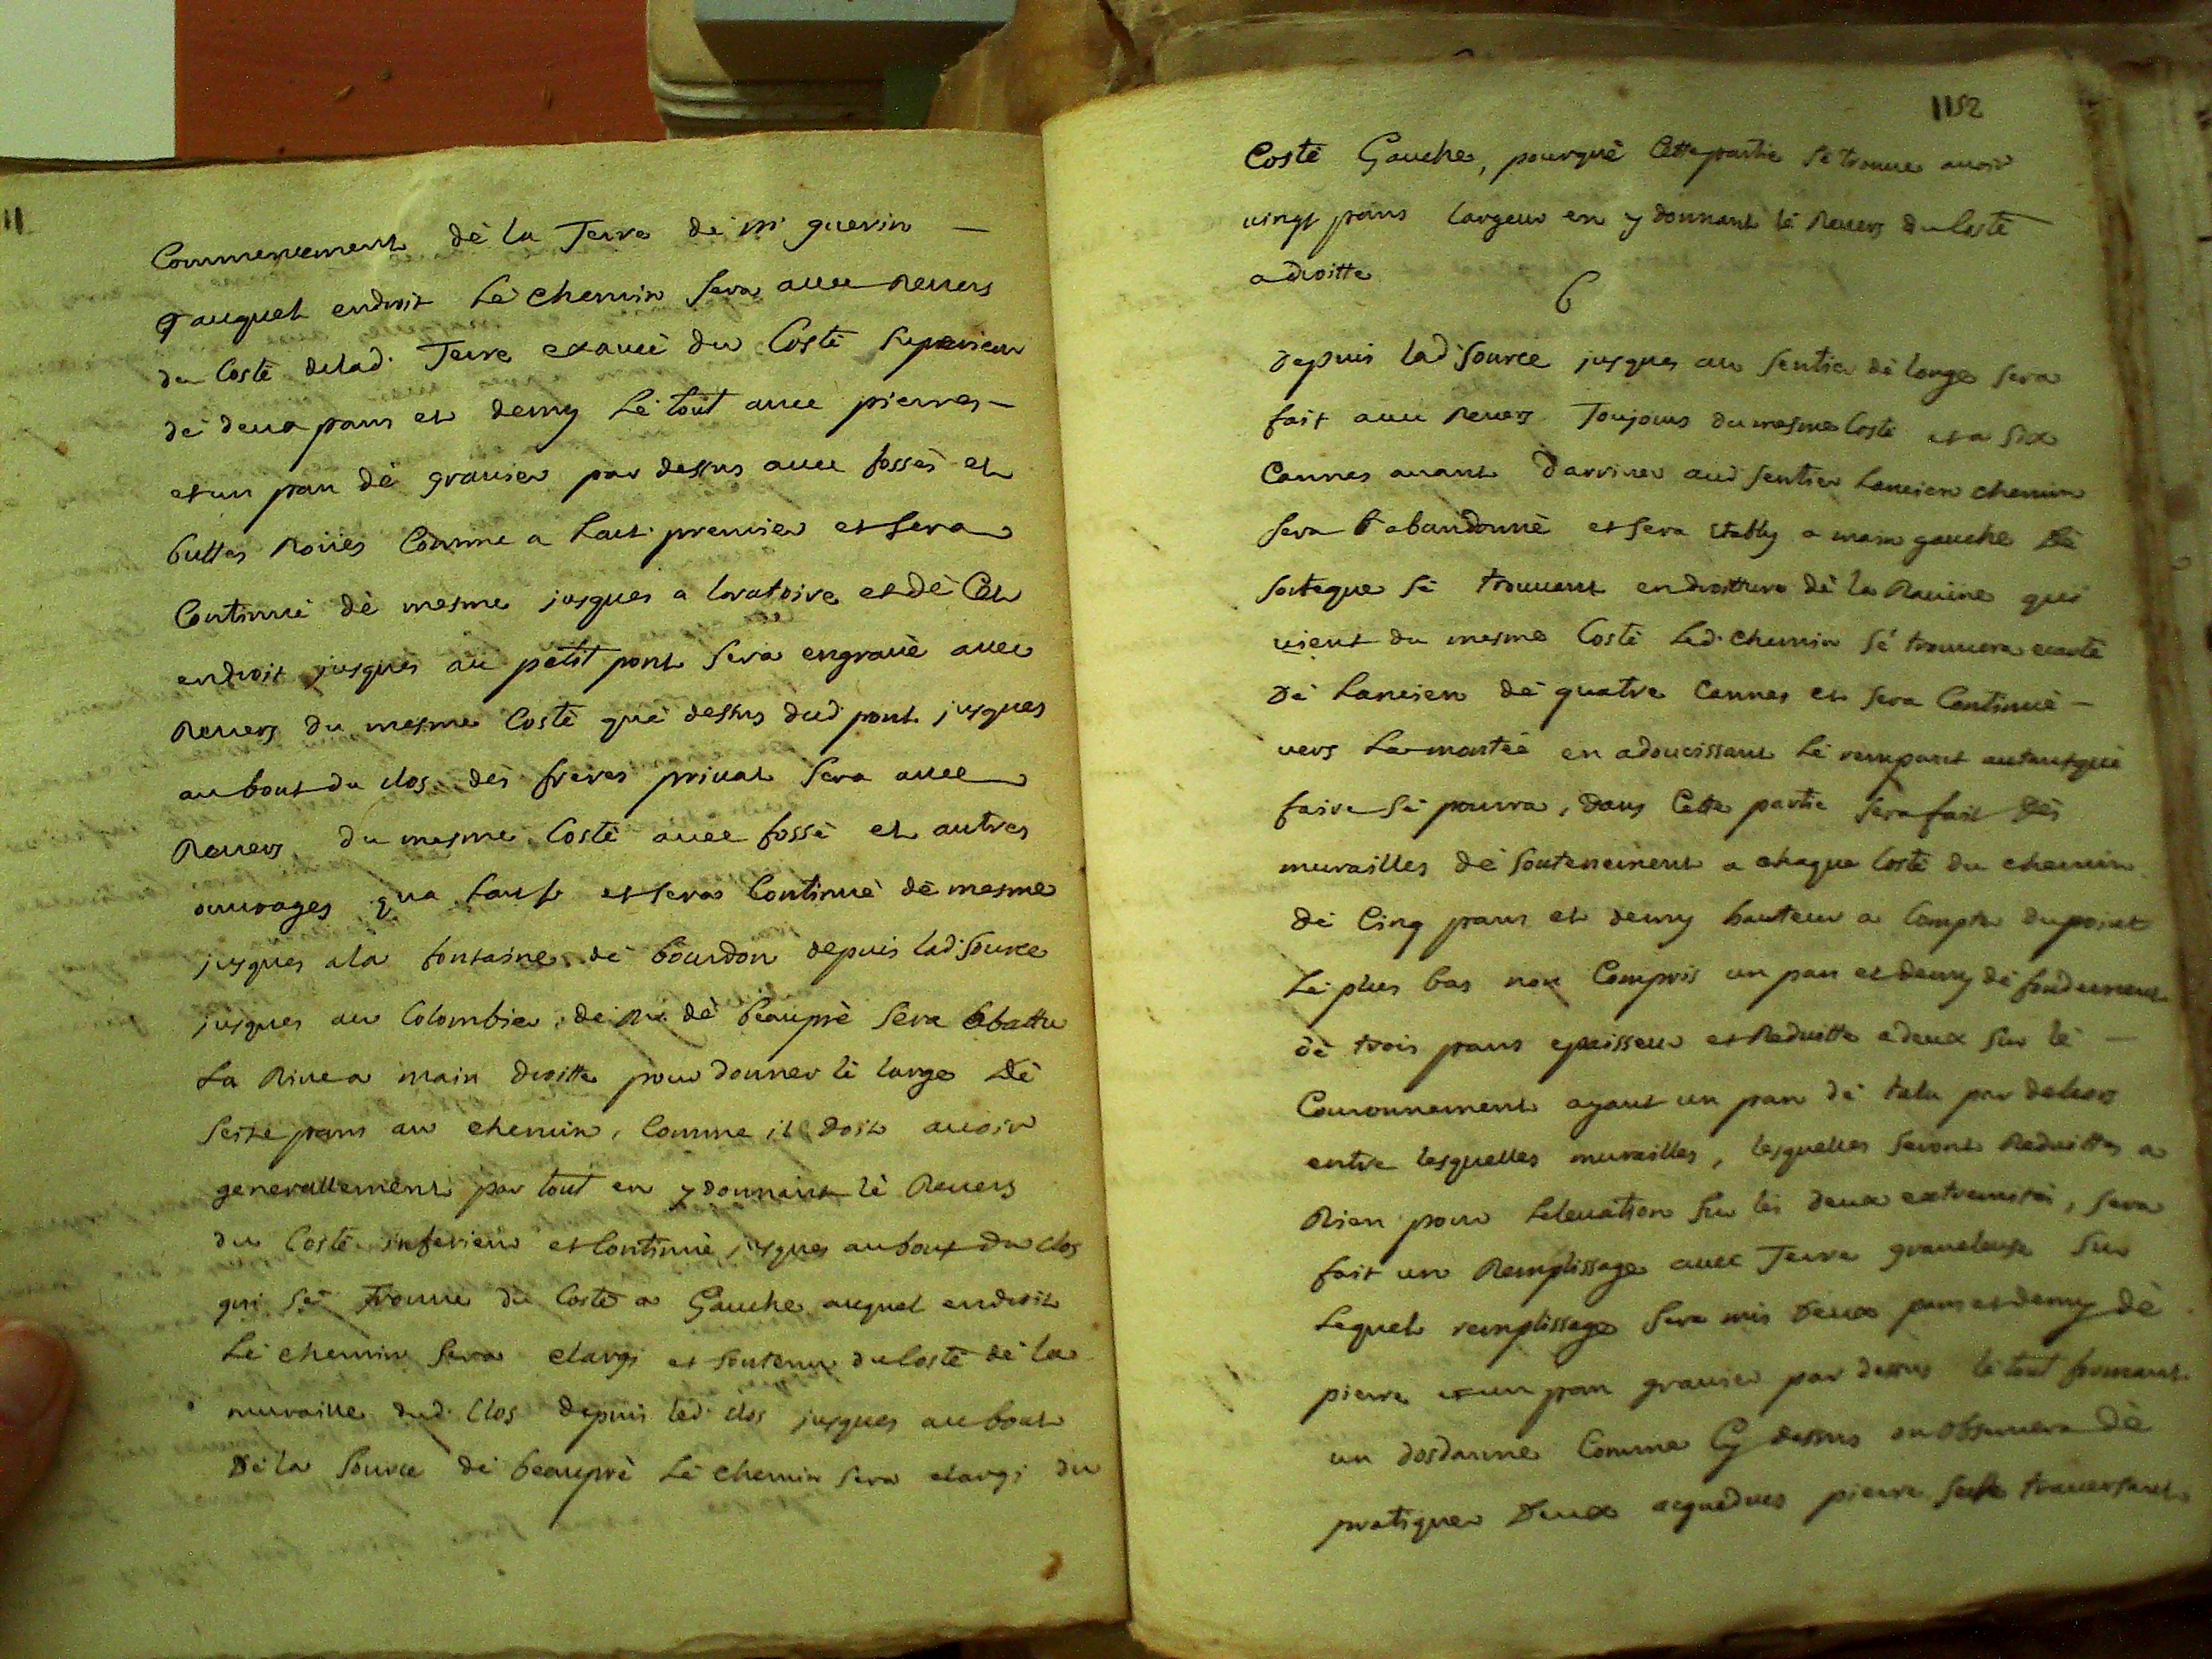 11
Commencement dè la Terre dè mr guerin
auquel endroit Lè chemin sera avec revers
du Costè delad. Terre exavcè du Costè superieur
dè deux pans et demy Lè tout avec pierres
et un pan dè gravier par dessus avec fossès et
buttes Roües Comme a Lart. premier et sera
Continuè dè mesme jusques a loratoire et dè Cet
endroit jusques au petit pont sera engravè avec
Revers du mesme Costè què dessus dud. pont jusques
au bout du clos dès freres privat sera avec
Revers du mesme Costè avec fossè et autres
ouvrages qua Lart. et sera Continuè dè mesme
jusques a la fontaine dè bourdon depuis lad. source
jusques au Colombier dè Mr. dè beauprè sera abattu
La Rive a main droitte pour donner lè large Dè
seize pans au chemin, Comme il doit avoir
generallement par tout en y donnant lè Revers
du Costè inferieur et Continuè jusques au bout du clos
qui sè trouve du Costè a Gauche auquel endroit
Lè chemin sera elargi et soutenu du Costè dè la
muraille dud. Clos depuis led. clos jusques au bout
Dè la source dè beauprè Lè chemin sera elargi du
1152
Costè Gauche, pourquè Cette partie sè trouve avoir
vingt pans largeur en y donnant lè Revers du Costè
a droitte
6
Depuis lad. source jusques au sentier dè longe sera
fait avec Revers Toujours du mesme Costè et a six
Cannes avant Darriver aud. sentier Lancien chemin
sera abandonnè et sera etably a main gauche Dè
sorte que sè trouvant en droitture dè la Ravine qui
vient du mesme Costè Led. chemin sè trouvera ecartè
Dè Lancien dè quatre Cannes et sera Continuè
vers La montèe en adoucissant Lè rempant autant què
faire sè pourra, dans Cette partie sera fait Dès
murailles dè soutenement a chaque Costè du chemin
Dè Cinq pans et demy hauteur a Compter du point
Lè plus bas non Compris un pan et demy dè fondement
dè trois pans epaisseur et Reduitte a deux sur lè
Couronnement ayant un pan dè talu par dehors
entre lesquelles murailles, lesquelles seront Reduittes a
Rien pour Lelevation sur lès deux extremitès, sera
fait un Remplissage avec Terre graveleuse sur
Lequel remplissage sera mis Deux pans et demy dè
pierre et un pan gravier par dessus lè tout formant
un dosdanne Comme Cy dessus on observera dè
pratiquer Deux aqueducs pierre seche traversant